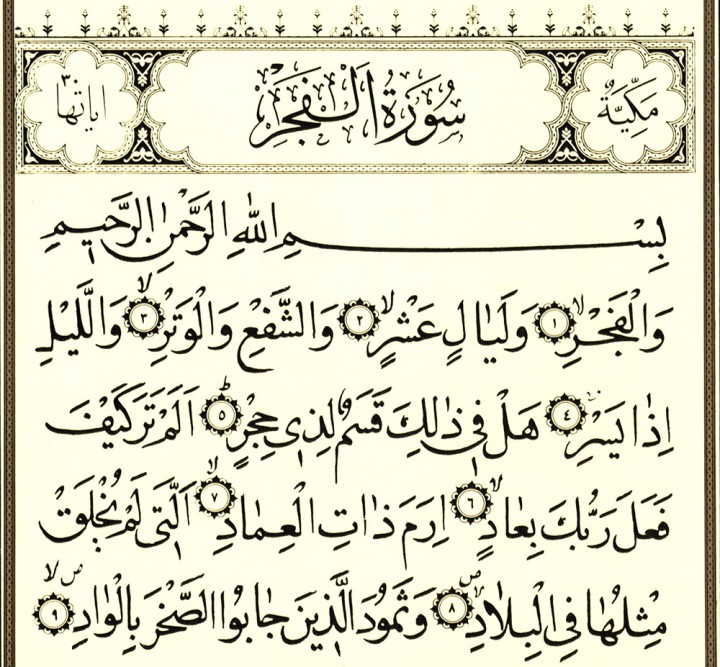 مَكِّيَّةٌ سُورَةُ الْفَجْرِ اٰيَاتُهَا ٣٠
بِسْمِ اللّٰهِ الرَّحْمٰنِ الرَّحِيمِ
وَالْفَجْرِۙ ﴿١﴾ وَلَيَالٍ عَشْرٍۙ ﴿٢﴾ وَالشَّفْعِ وَالْوَتْرِۙ ﴿٣﴾ وَالَّيْلِ
اِذَا يَسْرِۚ ﴿٤﴾ هَلْ فٖي ذٰلِكَ قَسَمٌ لِذٖي حِجْرٍؕ ﴿٥﴾ اَلَمْ تَرَ كَيْفَ
فَعَلَ رَبُّكَ بِعَادٍۙ ﴿٦﴾ اِرَمَ ذَاتِ الْعِمَادِۙ ﴿٧﴾ اَلَّتٖي لَمْ يُخْلَقْ
مِثْلُهَا فِي الْبِلَادِۙۖ ﴿٨﴾ وَثَمُودَ الَّذٖينَ جَابُوا الصَّخْرَ بِالْوَادِۙۖ ﴿٩﴾